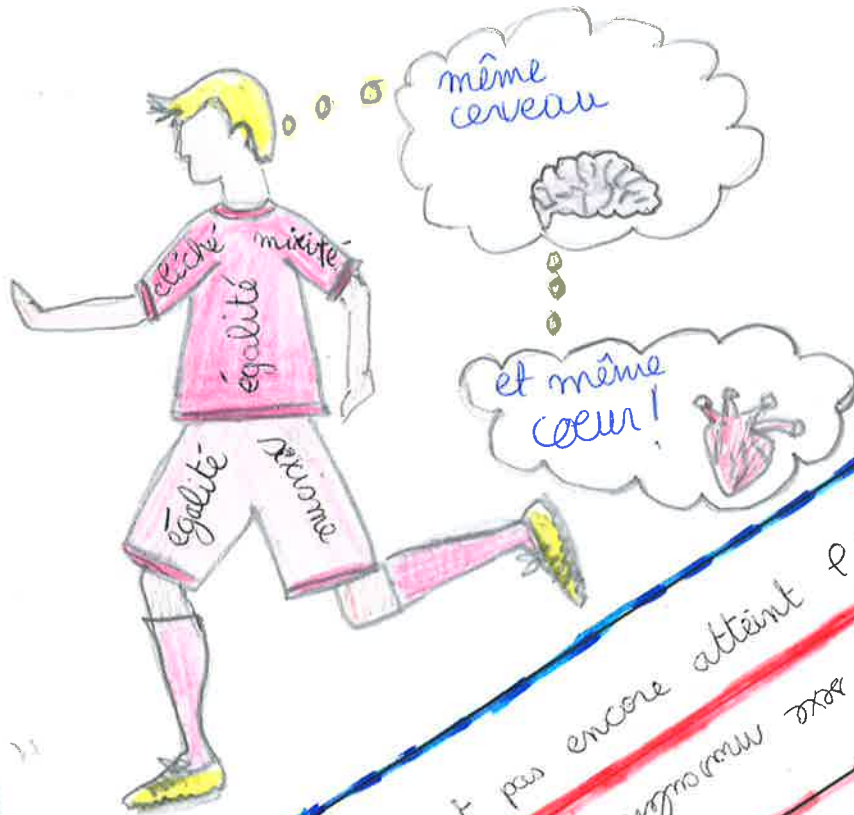 même
cerveau
et même
coeur !
cliché
mixité
égalité
égalité
sexisme
pas encore atteint